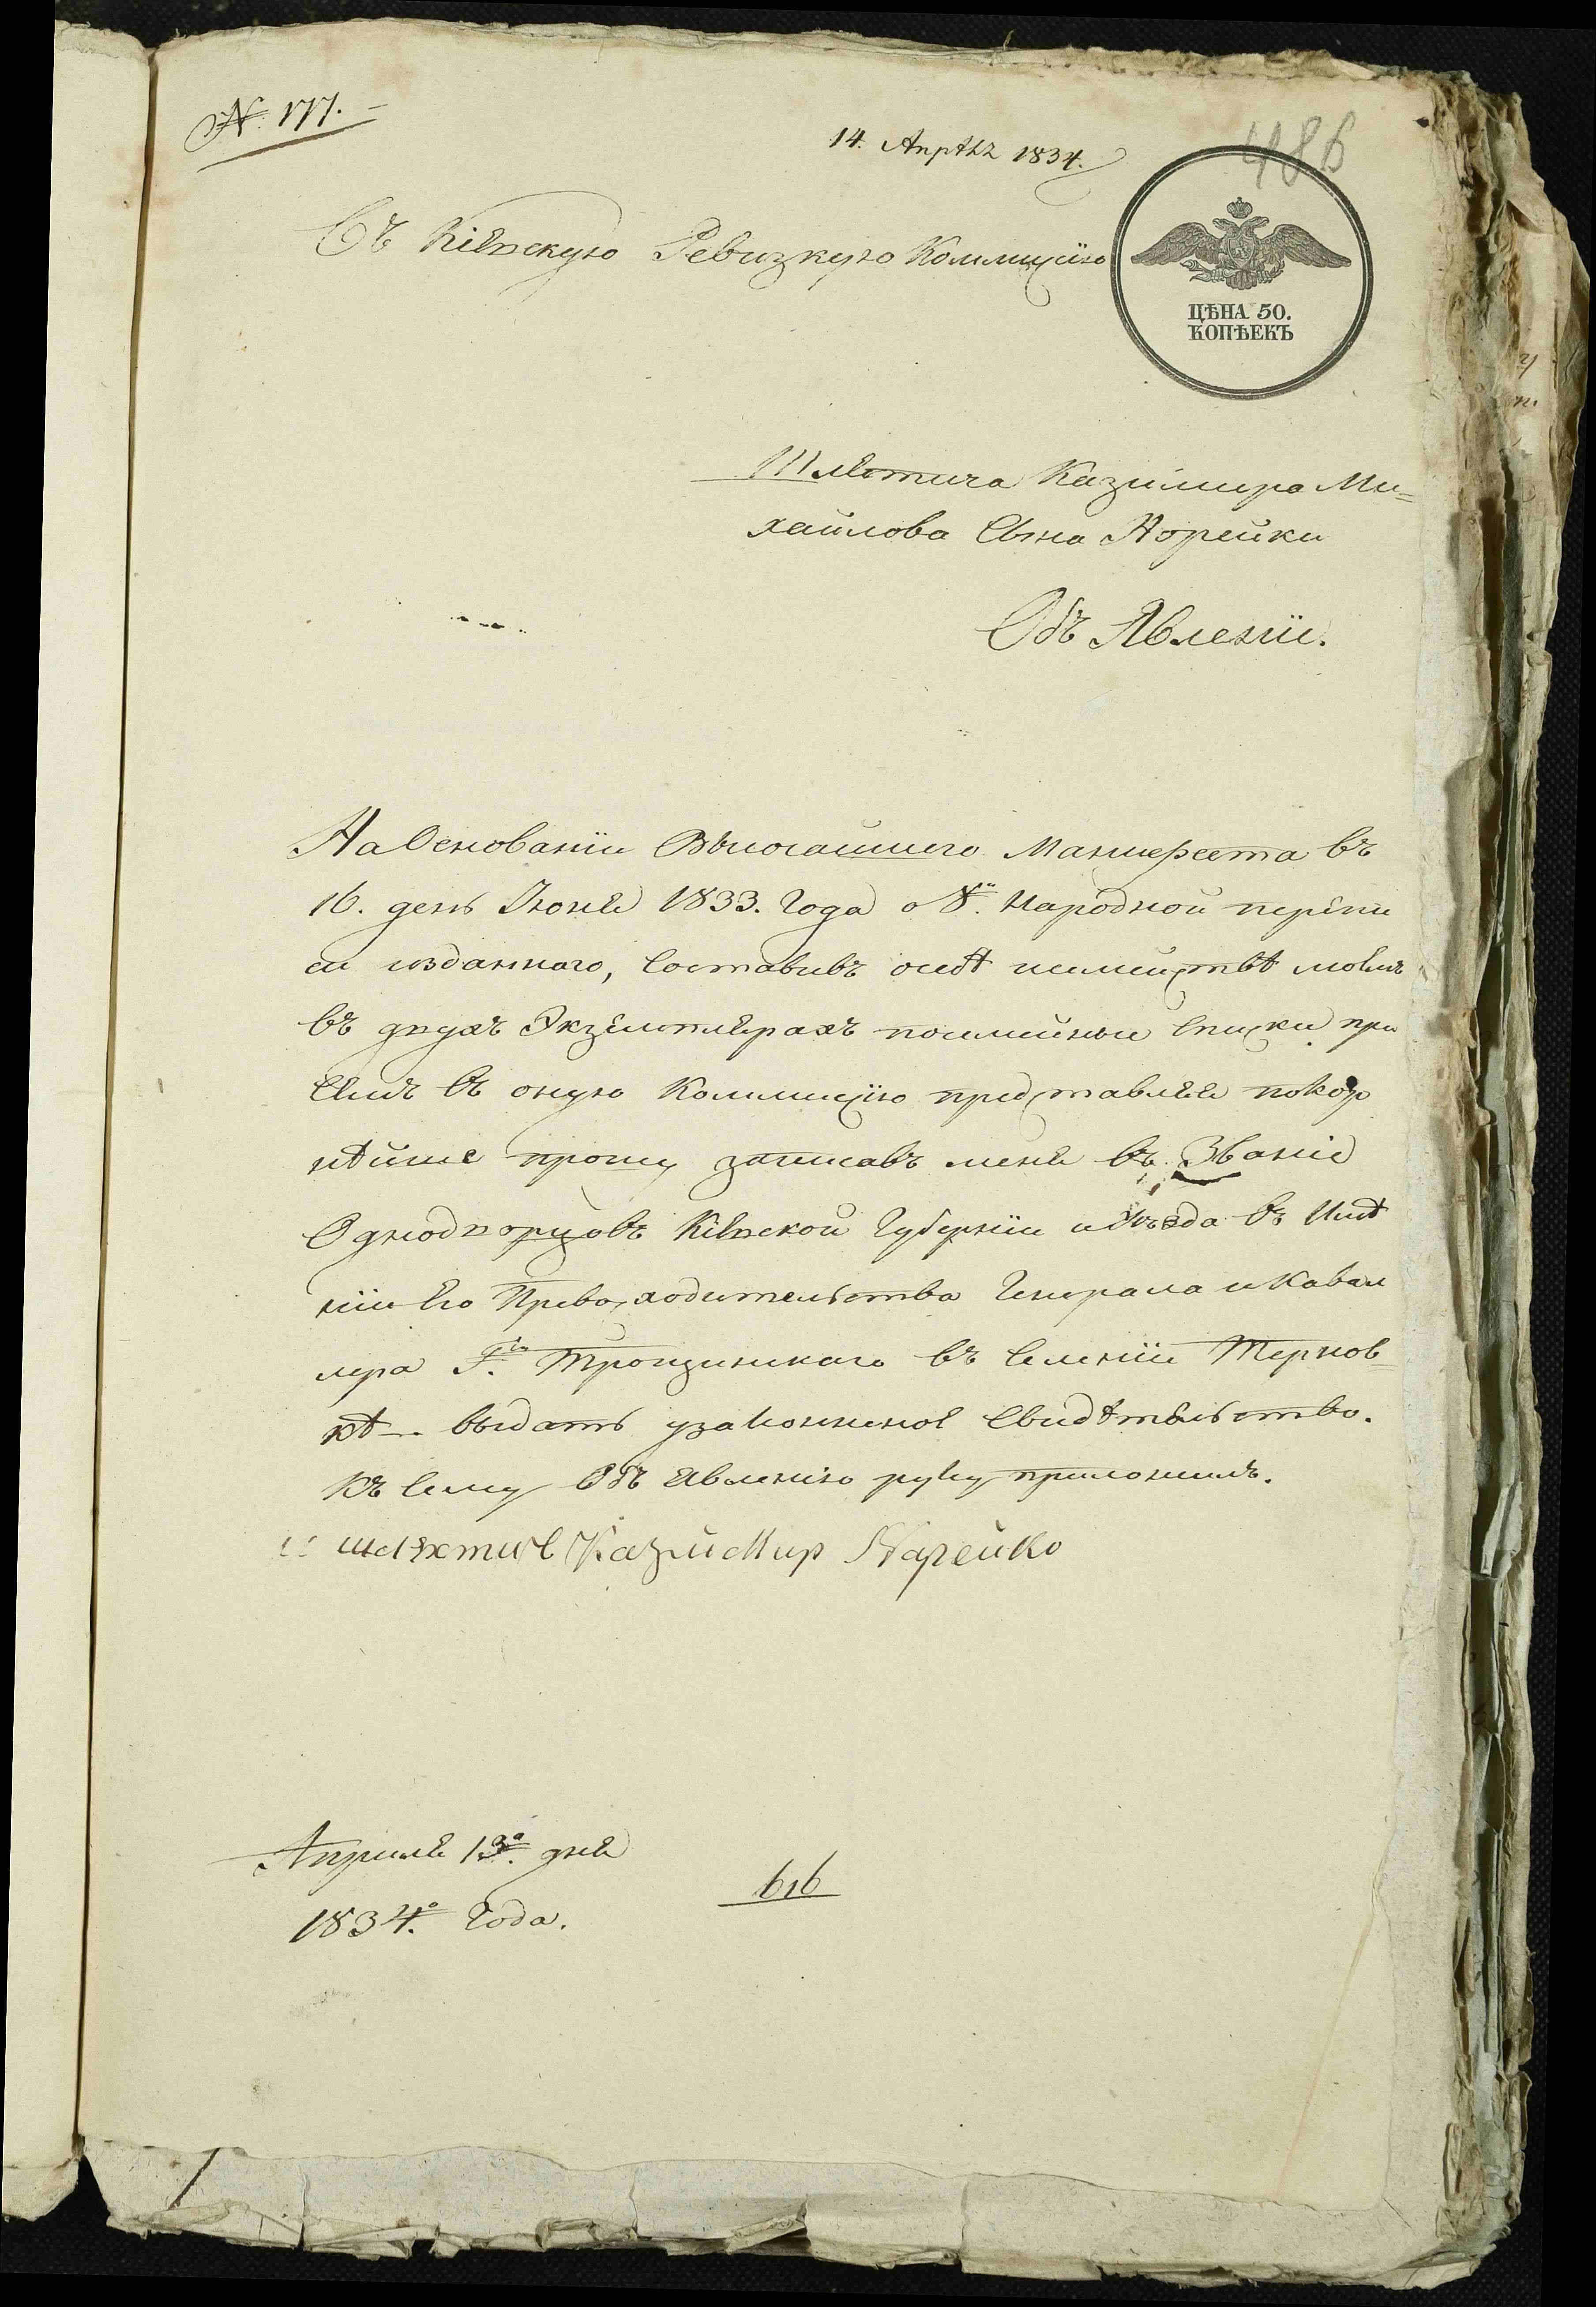 № 177.
14. Апрѣля 1834.
486
Въ Кіевскую Ревизкую Коммисію
ЦѢНА 50.
КОПѢЕКЪ
Шляхтича Казимира Ми=
хайлова Сына Норейки
Объ Явленіи.
На Основаніи Высочайшаго Манифеста въ
16. день Іюня 1833. Года о 8й. Народной перепи
си изданнаго, Составивъ о себѣ и семействѣ моемъ
въ двухъ Экземплярахъ посемейные Списки при
Семъ въ оную Коммисію представляя покор
нѣйше прошу записавъ меня въ Званіе
Однодворцовъ Кіевской Губерніи и Уѣзда въ Имѣ
ніи Его Превосходительства Генерала и Кавал
лера Гна. Трощинскаго въ Селеніи Тернов
кѣ. выдать узаконенное Свидѣтельство.
Къ Сему Объ Явленію руку приложилъ.
шляхтич Казимир Нарейко
Апреля 13го. дня
1834го. Года.
616